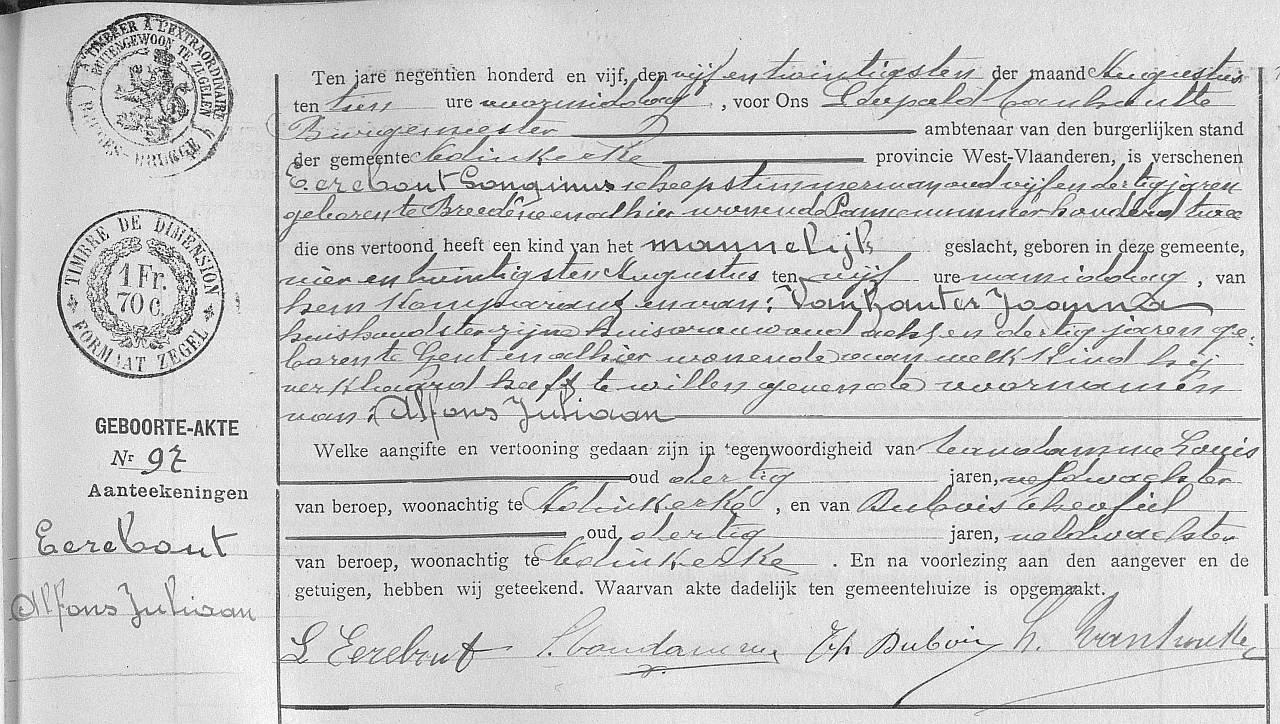 TIMBRER À L'EXTRAORDINAIRE
BUITENGEWOON TE ZEGELEN
BRUGGE
TIMBRE DE DIMENSION
1 Fr.
70 C.
FORMAAT ZEGEL
GEBOORTE-AKTE
Nr 97
Aanteekeningen
Eerebout
Alfons Juliaan
Ten jare negentien honderd en vijf, den vijf en twintigsten der maand Augustus
ten tien ure voormiddag, voor Ons Leopold Vanhoutte
Burgemeester ambtenaar van den burgerlijken stand
der gemeente Adinkerke provincie West-Vlaanderen, is verschenen
Eerebout Longinus scheepstimmerman oud vijf en dertig jaren
geboren te Breedene en alhier wonende Panne nummer honderd twee
die ons vertoond heeft een kind van het mannelijk geslacht, geboren in deze gemeente,
vier en twintigsten Augustus ten vijf ure namiddag, van
hem komparant en van: Vankanter Joanna
huishoudster zijne huisvrouw oud acht en dertig jaren ge-
boren te Gent en alhier wonende aan welk kind hij
verklaard heeft te willen geven de voornamen
van: Alfons Juliaan
Welke aangifte en vertooning gedaan zijn in tegenwoordigheid van Vandamme Louis
oud dertig jaren, veldwachter
van beroep, woonachtig te Adinkerke, en van Dubois Theofiel
oud dertig jaren, veldwachter
van beroep, woonachtig te Adinkerke. En na voorlezing aan den aangever en de
getuigen, hebben wij geteekend. Waarvan akte dadelijk ten gemeentehuize is opgemaakt.
L Eerebout L. Vandamme Th Dubois L. Vanhoutte